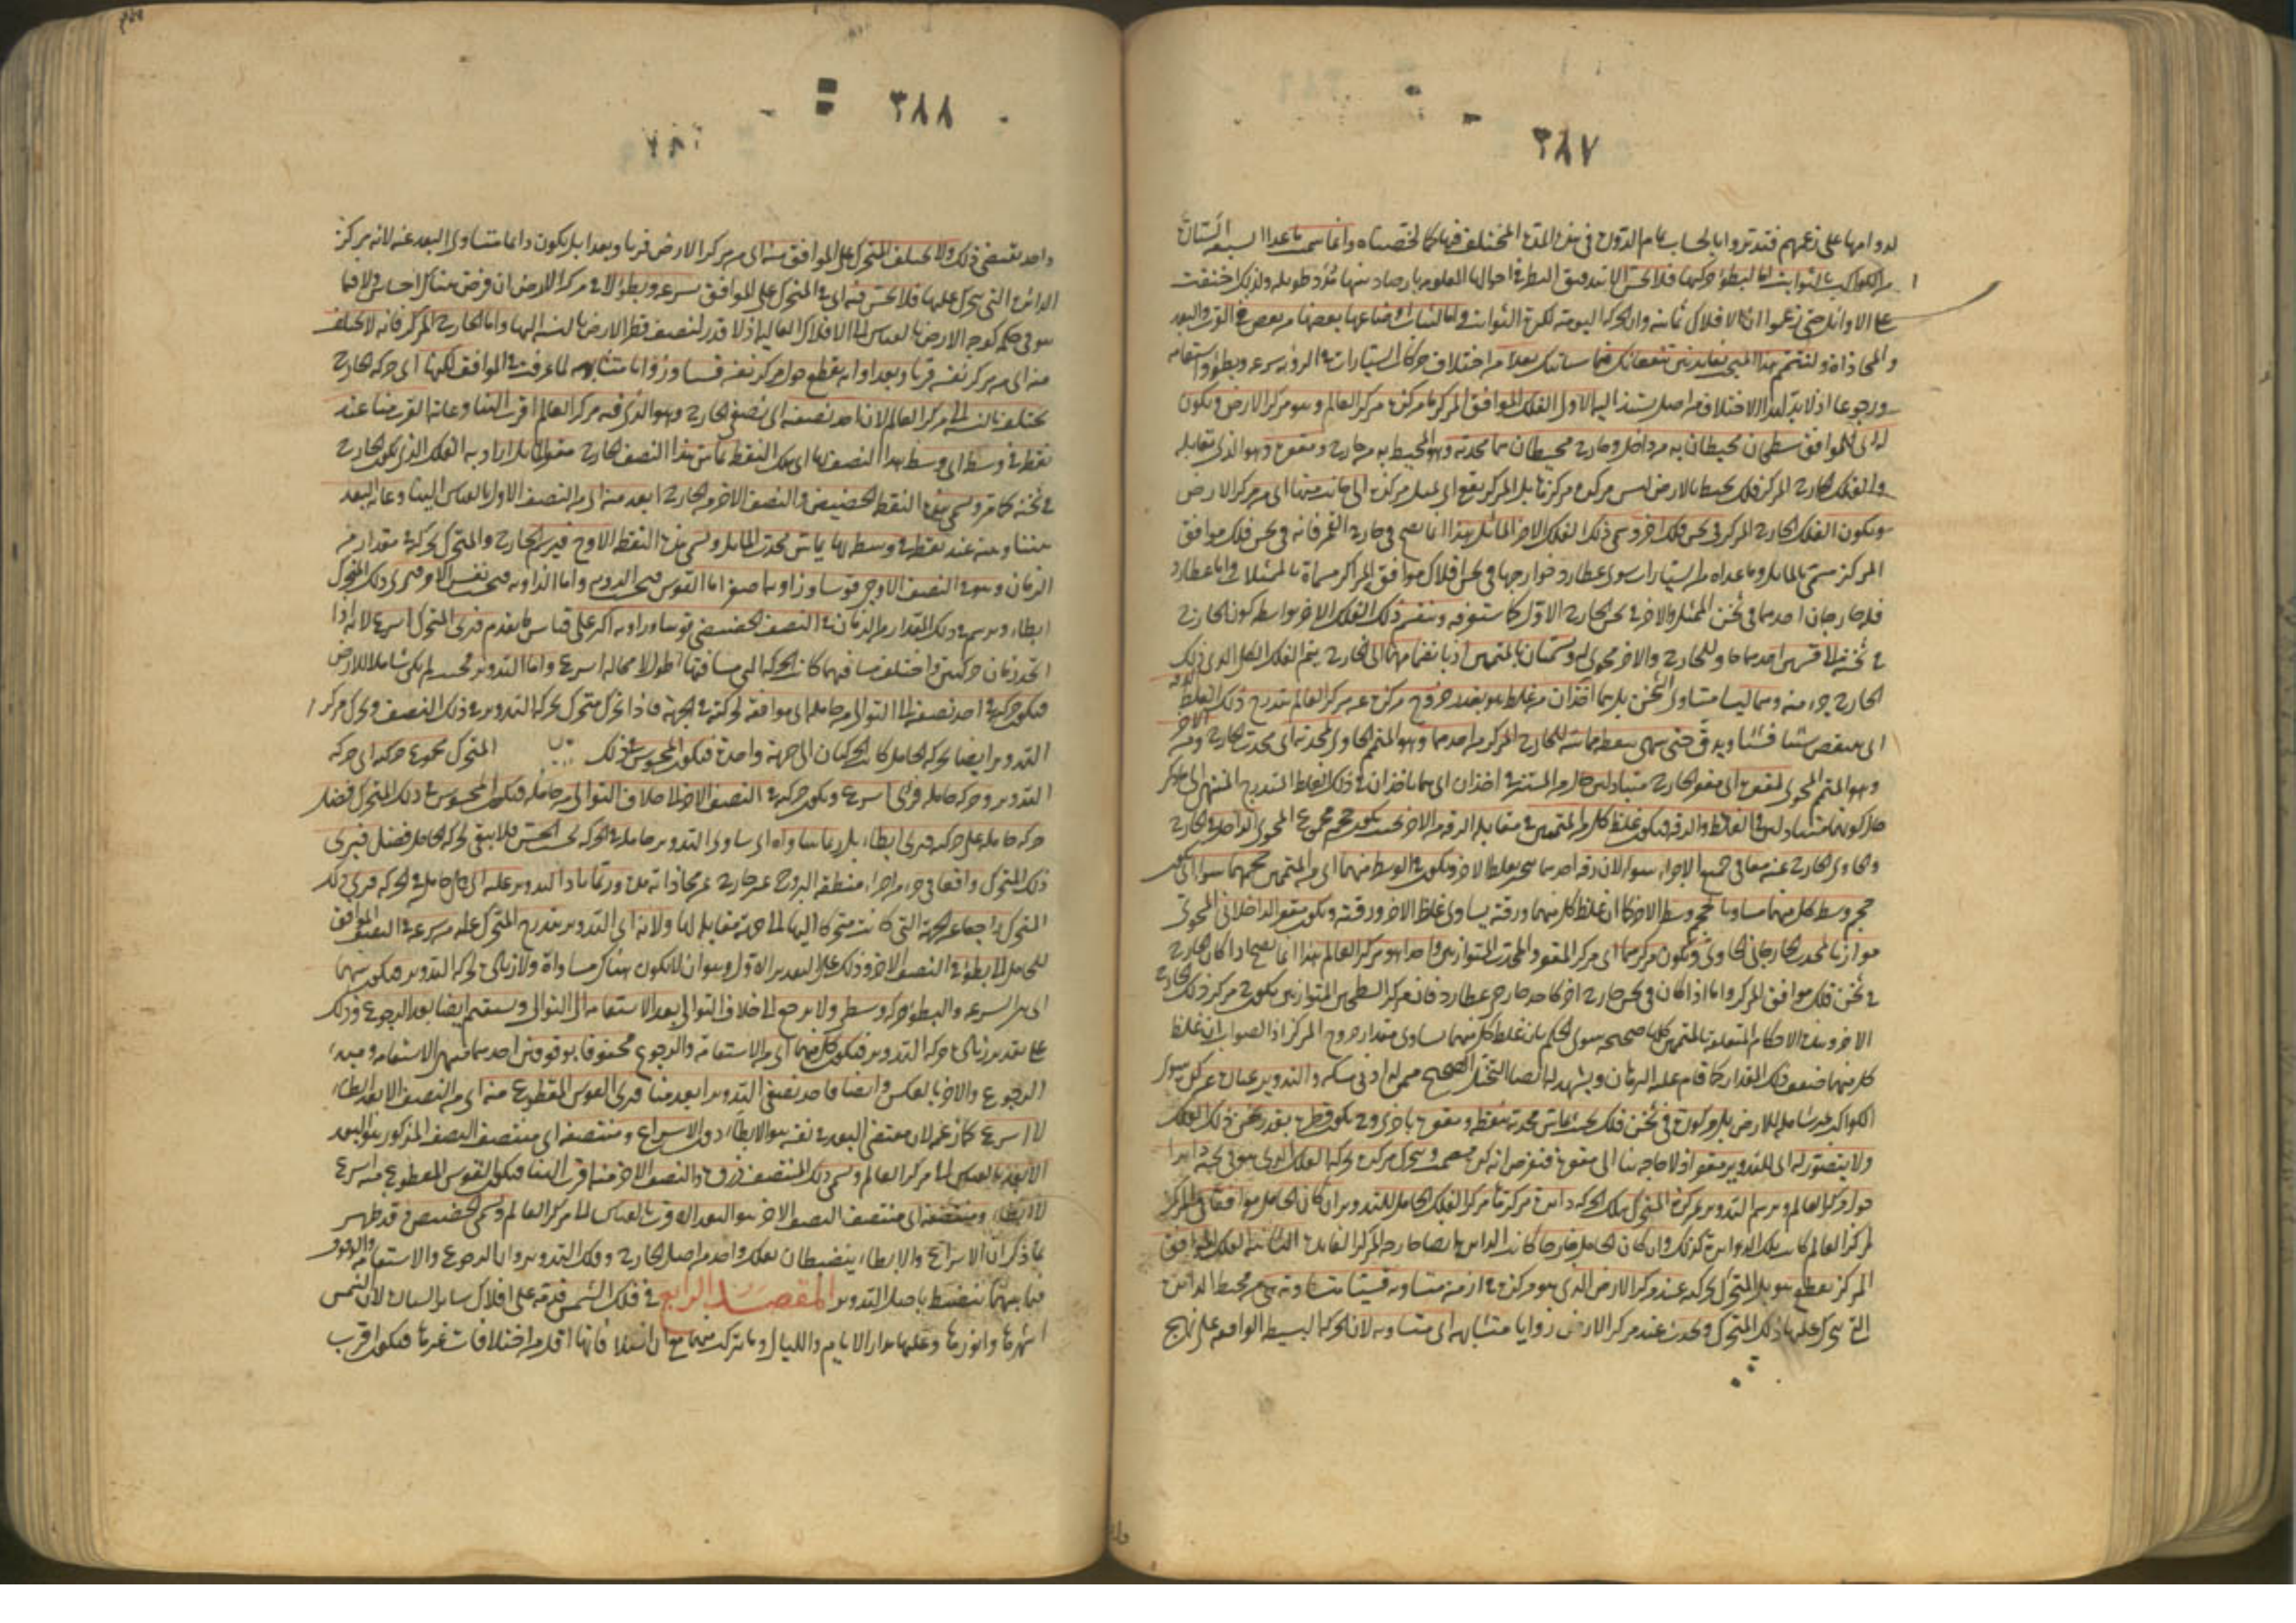 ٣٨٧
لدوامها على زعمهم فتدبروا بالحساب تمام الدورة في هذه المدة المختلف فيها كما لخصناه وانما سمى ما عدا السبعة السيارة
من الكواكب بالثوابت اما لبطؤ حركتها فلا تحس الا بتدقيق النظر في احوالها المعلومة بارصاد بينها مدد طويلة ولذلك خفيت
على الاوائل حتى زعموا ان الافلاك ثمانية وان الحركة اليومية لكرة الثوابت واما لثبات اوضاعها بعضها من بعض في القرب والبعد
والمحاذاة ولنختم هذا المبحث بفائدتين تنفعانك فيما سيأتيك بعد من اختلاف حركات السيارات في الرؤية سرعة وبطؤا واستقامة
ورجوعا اذ لا بد لهذا الاختلاف من اصل يستند اليه الاولى الفلك الموافق المركز ما مركزه مركز العالم وهو مركز الارض ويكون
له اى للموافق سطحان محيطان به من داخل وخارج محيطان هما محدبه وهو المحيط به من خارج ومقعره وهو الذى يقابله
والفلك الخارج المركز فلك محيط بالارض ليس مركزه مركزها بل المركز يقع اى يميل مركزه الى جانب منها اى من مركز الارض
ويكون الفلك الخارج المركز في ثخن فلك آخر وسمى ذلك الفلك الآخر المائل هذا انما يصح في خارج القمر فانه في ثخن فلك موافق
المركز مسمى بالمائل وما عداه من السيارات سوى عطارد فخوارجها في ثخن افلاك موافقة المراكز مسماة بالممثلات واما عطارد
فله خارجان احدهما في ثخن الممثل والآخر في ثخن الخارج الاول كما ستعرفه وينقسم ذلك الفلك الآخر بواسطة كون الخارج
في ثخنه ثلاثة اقسام احدهما حاو للخارج والآخر محوى له ويسميان بالمتممين اذ بانضمامهما الى الخارج يتم الفلك الكل الذى ذلك
الخارج جزء منه وهما ليسا متساوى الثخن بل هما آخذان من غلظ هو بقدر خروج مركزه عن مركز العالم يتدرج ذلك الغلظ الى الرقة
اى ينقص شيئا فشيئا ويدق حتى ينتهى بنقطة مماسة للخارج المركز من احدهما وهو المتمم الحاوى لمحدبه اى محدب الخارج ومن الآخر
وهو المتمم المحوى لمقعره اى مقعر الخارج متبادلين حال من المستتر في آخذان اى هما يأخذان في ذلك الغلظ المتدرج المنتهى الى ما ذكر
حال كونهما متبادلين في الغلظ والرقة فيكون غلظ كل من المتممين في مقابلة الرقة من الآخر بحيث يكون حجم مجموع المحوى الداخل في الخارج
والحاوى الخارج عنه معا في جميع الاجزاء سواء لان رقة احدهما تنجبر بغلظ الآخر ويكون في الوسط منهما اى من المتممين حجمهما سواء اى يكون
حجم وسط كل منهما مساويا لحجم وسط الآخر كما ان غلظ كل منهما ورقته يساوى غلظ الآخر ورقته ويكون مقعر الداخلانى المحوى
موازيا لمحدب الخارجانى الحاوى ويكون مركزهما اى مركز المقعر والمحدب المتوازيين واحدا هو مركز العالم هذا انما يصح اذا كان الخارج
في ثخن فلك موافق المركز واما اذا كان في ثخن خارج آخر كاحد خارجى عطارد فان مركز السطحين المتوازيين يكون مركز ذلك الخارج
الآخر وهذه الاحكام المتعلقة بالمتممين كلها صحيحة سوى الحكم بان غلظ كل منهما يساوى مقدار خروج المركز اذ الصواب ان غلظ
كل منهما ضعف ذلك المقدار كما قام عليه البرهان ويشهد له ايضا التخيل الصحيح ممن له ادنى مسكة والتدوير عبارة عن كرة سوى
الكواكب غير شاملة للارض بل مركوزة في ثخن فلك بحيث تماس محدبه بنقطة ومقعره باخرى ويكون قطره بقدر ثخن ذلك الفلك
ولا يتصور له اى للتدوير مقعر اذ لا حاجة بنا الى مقعره فنفرض انه كرة مصمتة ويتحرك مركزه بحركة الفلك الذى هو في ثخنه ابدا
حول مركز العالم ويرسم التدوير بمركزه المتحرك بتلك الحركة دائرة مركزها مركز الفلك الحامل للتدوير ان كان الحامل موافق المركز
لمركز العالم كانت تلك الدائرة كذلك وان كان الحامل خارجا كانت الدائرة ايضا خارجة المركز الفائدة الثانية الفلك الموافق
المركز يقطع هو بل المتحرك بحركته عند مركز الارض الذى هو مركزه في ازمنة متساوية قسيا متساوية من محيط الدائرة
التى يتحرك عليها ذلك المتحرك ويحدث عند مركز الارض زوايا متشابهة اى متساوية لان الحركة البسيطة الواقعة على نهج
٣٨٨
واحد تقتضى ذلك ولا يختلف المتحرك على الموافق منه اى من مركز الارض قربا وبعدا بل يكون دائما متساوى البعد عنه لانه مركز
الدائرة التى يتحرك عليها فلا تحس فيه اى في المتحرك على الموافق سرعة وبطؤ لا في مركز الارض ان فرض هناك احساس ولا فيما
هو في حكمه كوجه الارض بالقياس الى الافلاك العالية اذ لا قدر لنصف قطر الارض بالنسبة اليها واما الخارج المركز فانه لا يختلف
منه اى من مركز نفسه قربا وبعدا وانه يقطع حول مركز نفسه قسيا وزوايا متشابهة لما عرفت في الموافق لكنها اى حركة الخارج
تختلف بالنسبة الى مركز العالم لان احد نصفيه اى نصفى الخارج وهو الذى فيه مركز العالم اقرب الينا وغاية القرب منا عند
نقطة في وسطه اى وسط هذا النصف بها اى بتلك النقطة يماس هذا النصف الخارج مقعر المائل اراد به الفلك الذى يكون الخارج
في ثخنه كما مر وتسمى هذه النقطة الحضيض والنصف الآخر من الخارج ابعد منه اى من النصف الاول بالقياس الينا وغاية البعد
بيننا وبينه عند نقطة في وسطه بها يماس محدب المائل وتسمى هذه النقطة الاوج فيرسم الخارج والمتحرك بحركته في مقدار من
الزمان وهو في النصف الاوجى قوسا وزاوية اصغر اما القوس فبحسب الرؤية واما الزاوية فبحسب نفس الامر فيرى ذلك المتحرك
ابطاء ويرسم في ذلك المقدار من الزمان في النصف الحضيضى قوسا وزاوية اكبر على قياس ما تقدم فيرى المتحرك اسرع لانه اذا
اتحد زمان حركتين واختلف مسافتهما كانت الحركة التى مسافتها اطول لا محالة اسرع واما التدوير فحيث لم يكن شاملا للارض
فيكون حركته في احد نصفيه الى التوالى من حامله اى موافقة لحركته في الجهة فاذا تحرك متحرك بحركة التدوير في ذلك النصف وتحرك مركز
التدوير ايضا بحركة الحامل كانت الحركتان الى جهة واحدة فيكون المحسوس في ذلك المتحرك مجموع حركته اى حركة
التدوير وحركة حامله فيرى اسرع ويكون حركته في النصف الآخر الى خلاف التوالى من حامله فيكون المحسوس في ذلك المتحرك فضل
حركة حامله على حركته فيرى ابطاء بل ربما ساواه اى ساوى التدوير حامله في الحركة بحسب الحس فلا يبقى لحركة الحامل فضل فيرى
ذلك المتحرك واقفا في جزء من اجزاء منطقة البروج غير خارج عن محاذاته مدة وربما زاد التدوير عليه اى على حامله في الحركة فيرى ذلك
المتحرك راجعا عن الجهة التى كانت متحركا اليها الى جهة مقابلة لها ولانه اى التدوير يتدرج المتحرك عليه من سرعة في النصف الموافق
للحامل الى بطؤ في النصف الآخر وذلك على التقدير الاول وهو ان لا يكون هناك مساواة ولا زيادة لحركة التدوير فيكون بينهما
اى بين السرعة والبطؤ حركة وسط ولا يرجع الى خلاف التوالى بعد الاستقامة الى التوالى ويستقيم ايضا بعد الرجوع وذلك
على تقدير زيادة حركة التدوير فيكون كل منهما اى من الاستقامة والرجوع محفوفا بوقوفين احدهما منتهى الاستقامة ومبدء
الرجوع والآخر بالعكس وايضا فاحد نصفى التدوير ابعد منا فيرى القوس المقطوع منه اى من النصف الابعد ابطاء
لا اسرع كما زعم لان مقتضى البعد في نفسه هو الابطاء دون الاسراع ومنتصفه اى منتصف النصف المذكور هو البعد
الابعد بالقياس الى مركز العالم وتسمى ذلك المنتصف ذروة والنصف الآخر منه اقرب الينا فيكون القوس المقطوع منه اسرع
لا ابطاء ومنتصفه اى منتصف النصف الآخر هو البعد الاقرب بالقياس الى مركز العالم وتسمى الحضيض وقد ظهر
بما ذكر ان الاسراع والابطاء ينضبطان بفلك واحد من اصل الخارج وفلك التدوير وان الرجوع والاستقامة والوقوف
فيما بينهما ينضبط باصل التدوير المقصد الرابع في فلك الشمس قدمه على افلاك سائر السيارات لان الشمس
اشهرها وانورها وعليها مدار الايام والليالى وما يتركب منهما مع ان لفلكها فانها اقل من اختلافات غيرها فيكون اقرب